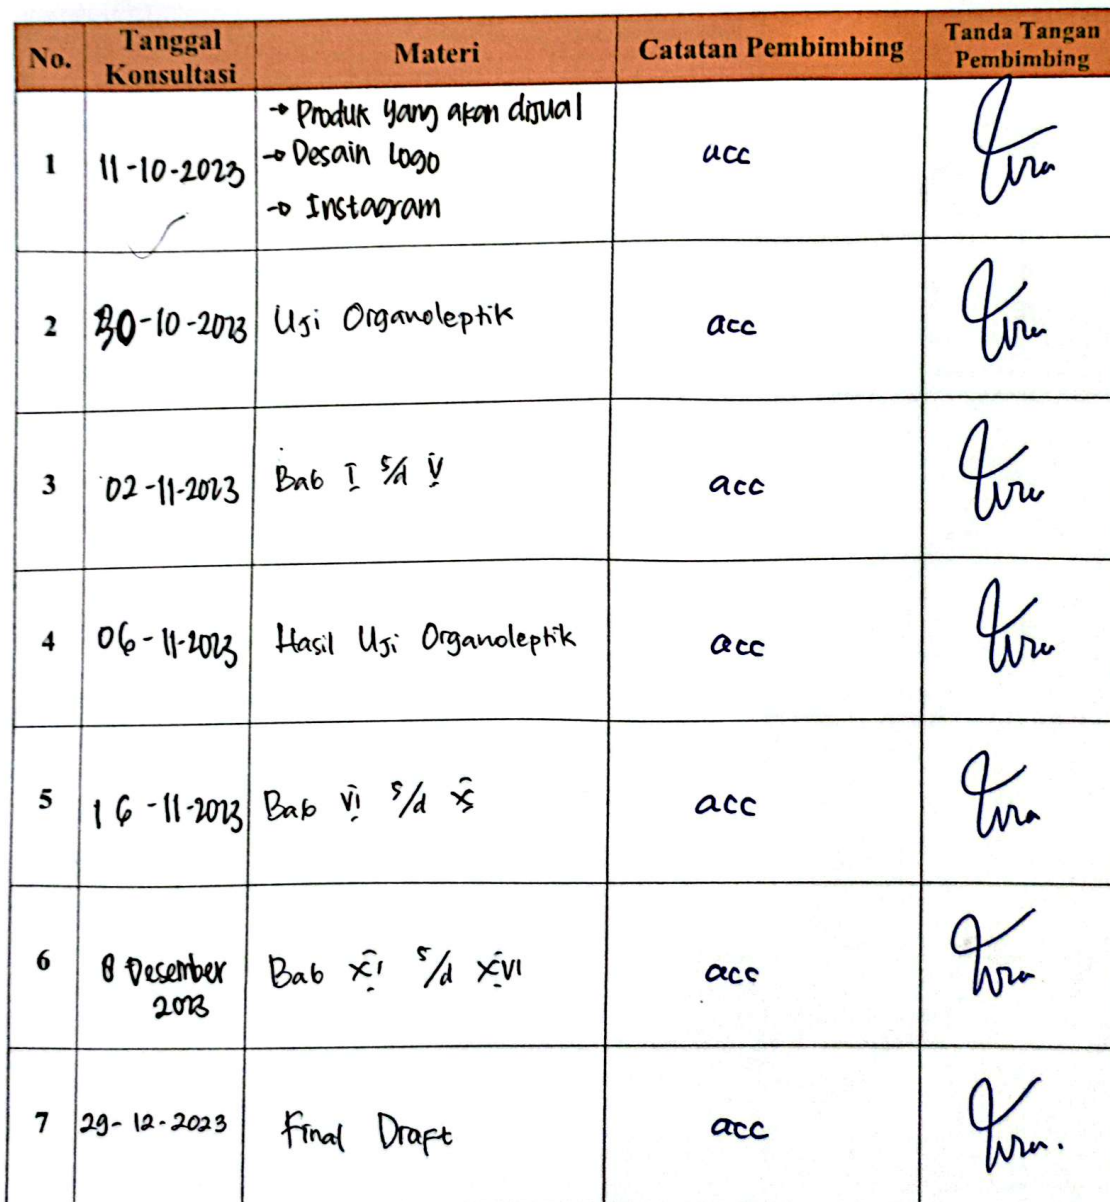 No. Tanggal Konsultasi Materi Catatan Pembimbing Tanda Tangan Pembimbing
1 11-10-2023 → Produk yang akan dijual acc
→ Desain Logo
→ Instagram
2 30-10-2023 Uji Organoleptik acc
3 02-11-2023 Bab I s/d V acc
4 06-11-2023 Hasil Uji Organoleptik acc
5 16-11-2023 Bab VI s/d X acc
6 8 Desember 2023 Bab XI s/d XVI acc
7 29-12-2023 Final Draft acc